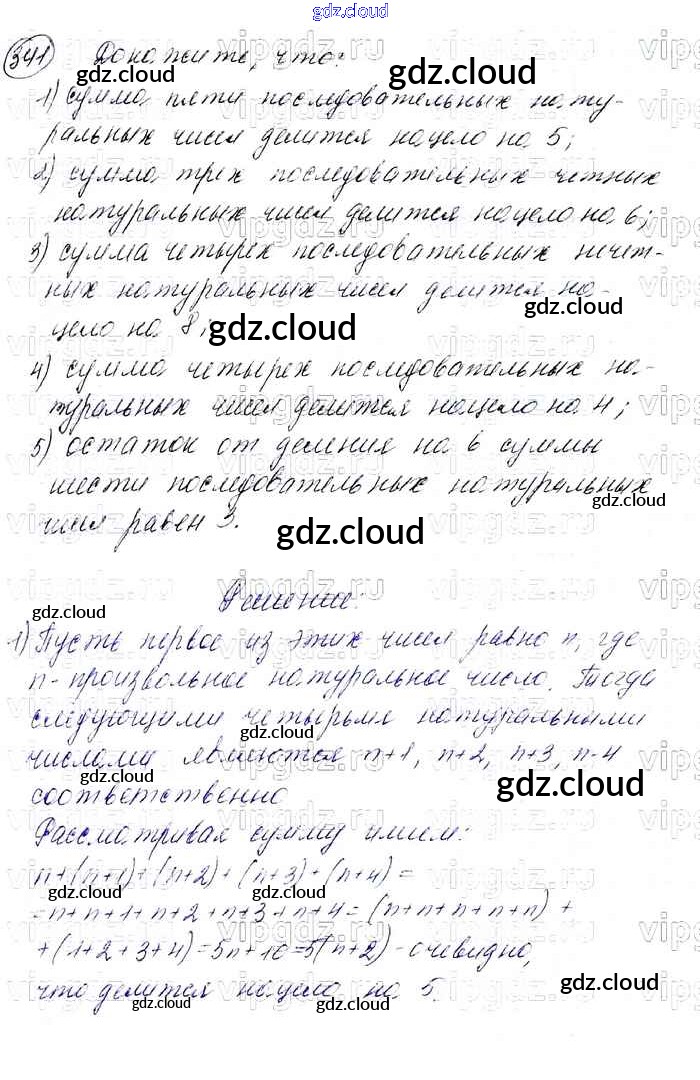 gdz.cloud
341 Докажите, что:
gdz.cloud
gdz.cloud
1) сумма пяти последовательных нату-
ральных чисел делится нацело на 5;
2) сумма трех последовательных четных
натуральных чисел делится нацело на 6;
3) сумма четырех последовательных нечет-
ных натуральных чисел делится на-
gdz.cloud
цело на 8;
gdz.cloud
4) сумма четырех последовательных на-
туральных чисел делится нацело на 4;
5) остаток от деления на 6 суммы
шести последовательных натуральных
gdz.cloud
чисел равен 3.
gdz.cloud
Решение:
gdz.cloud
1) Пусть первое из этих чисел равно n, где
n - произвольное натуральное число. Тогда
следующими четырьмя натуральными
gdz.cloud
числами являются n+1, n+2, n+3, n-4
gdz.cloud
gdz.cloud
соответственно
Рассматривая сумму имеем:
n+(n+1)+(n+2)+(n+3)+(n+4)=
gdz.cloud
gdz.cloud
=n+n+1+n+2+n+3+n+4=(n+n+n+n+n)+
+(1+2+3+4)=5n+10=5(n+2) - очевидно,
что делится нацело на 5.
gdz.cloud
gdz.cloud